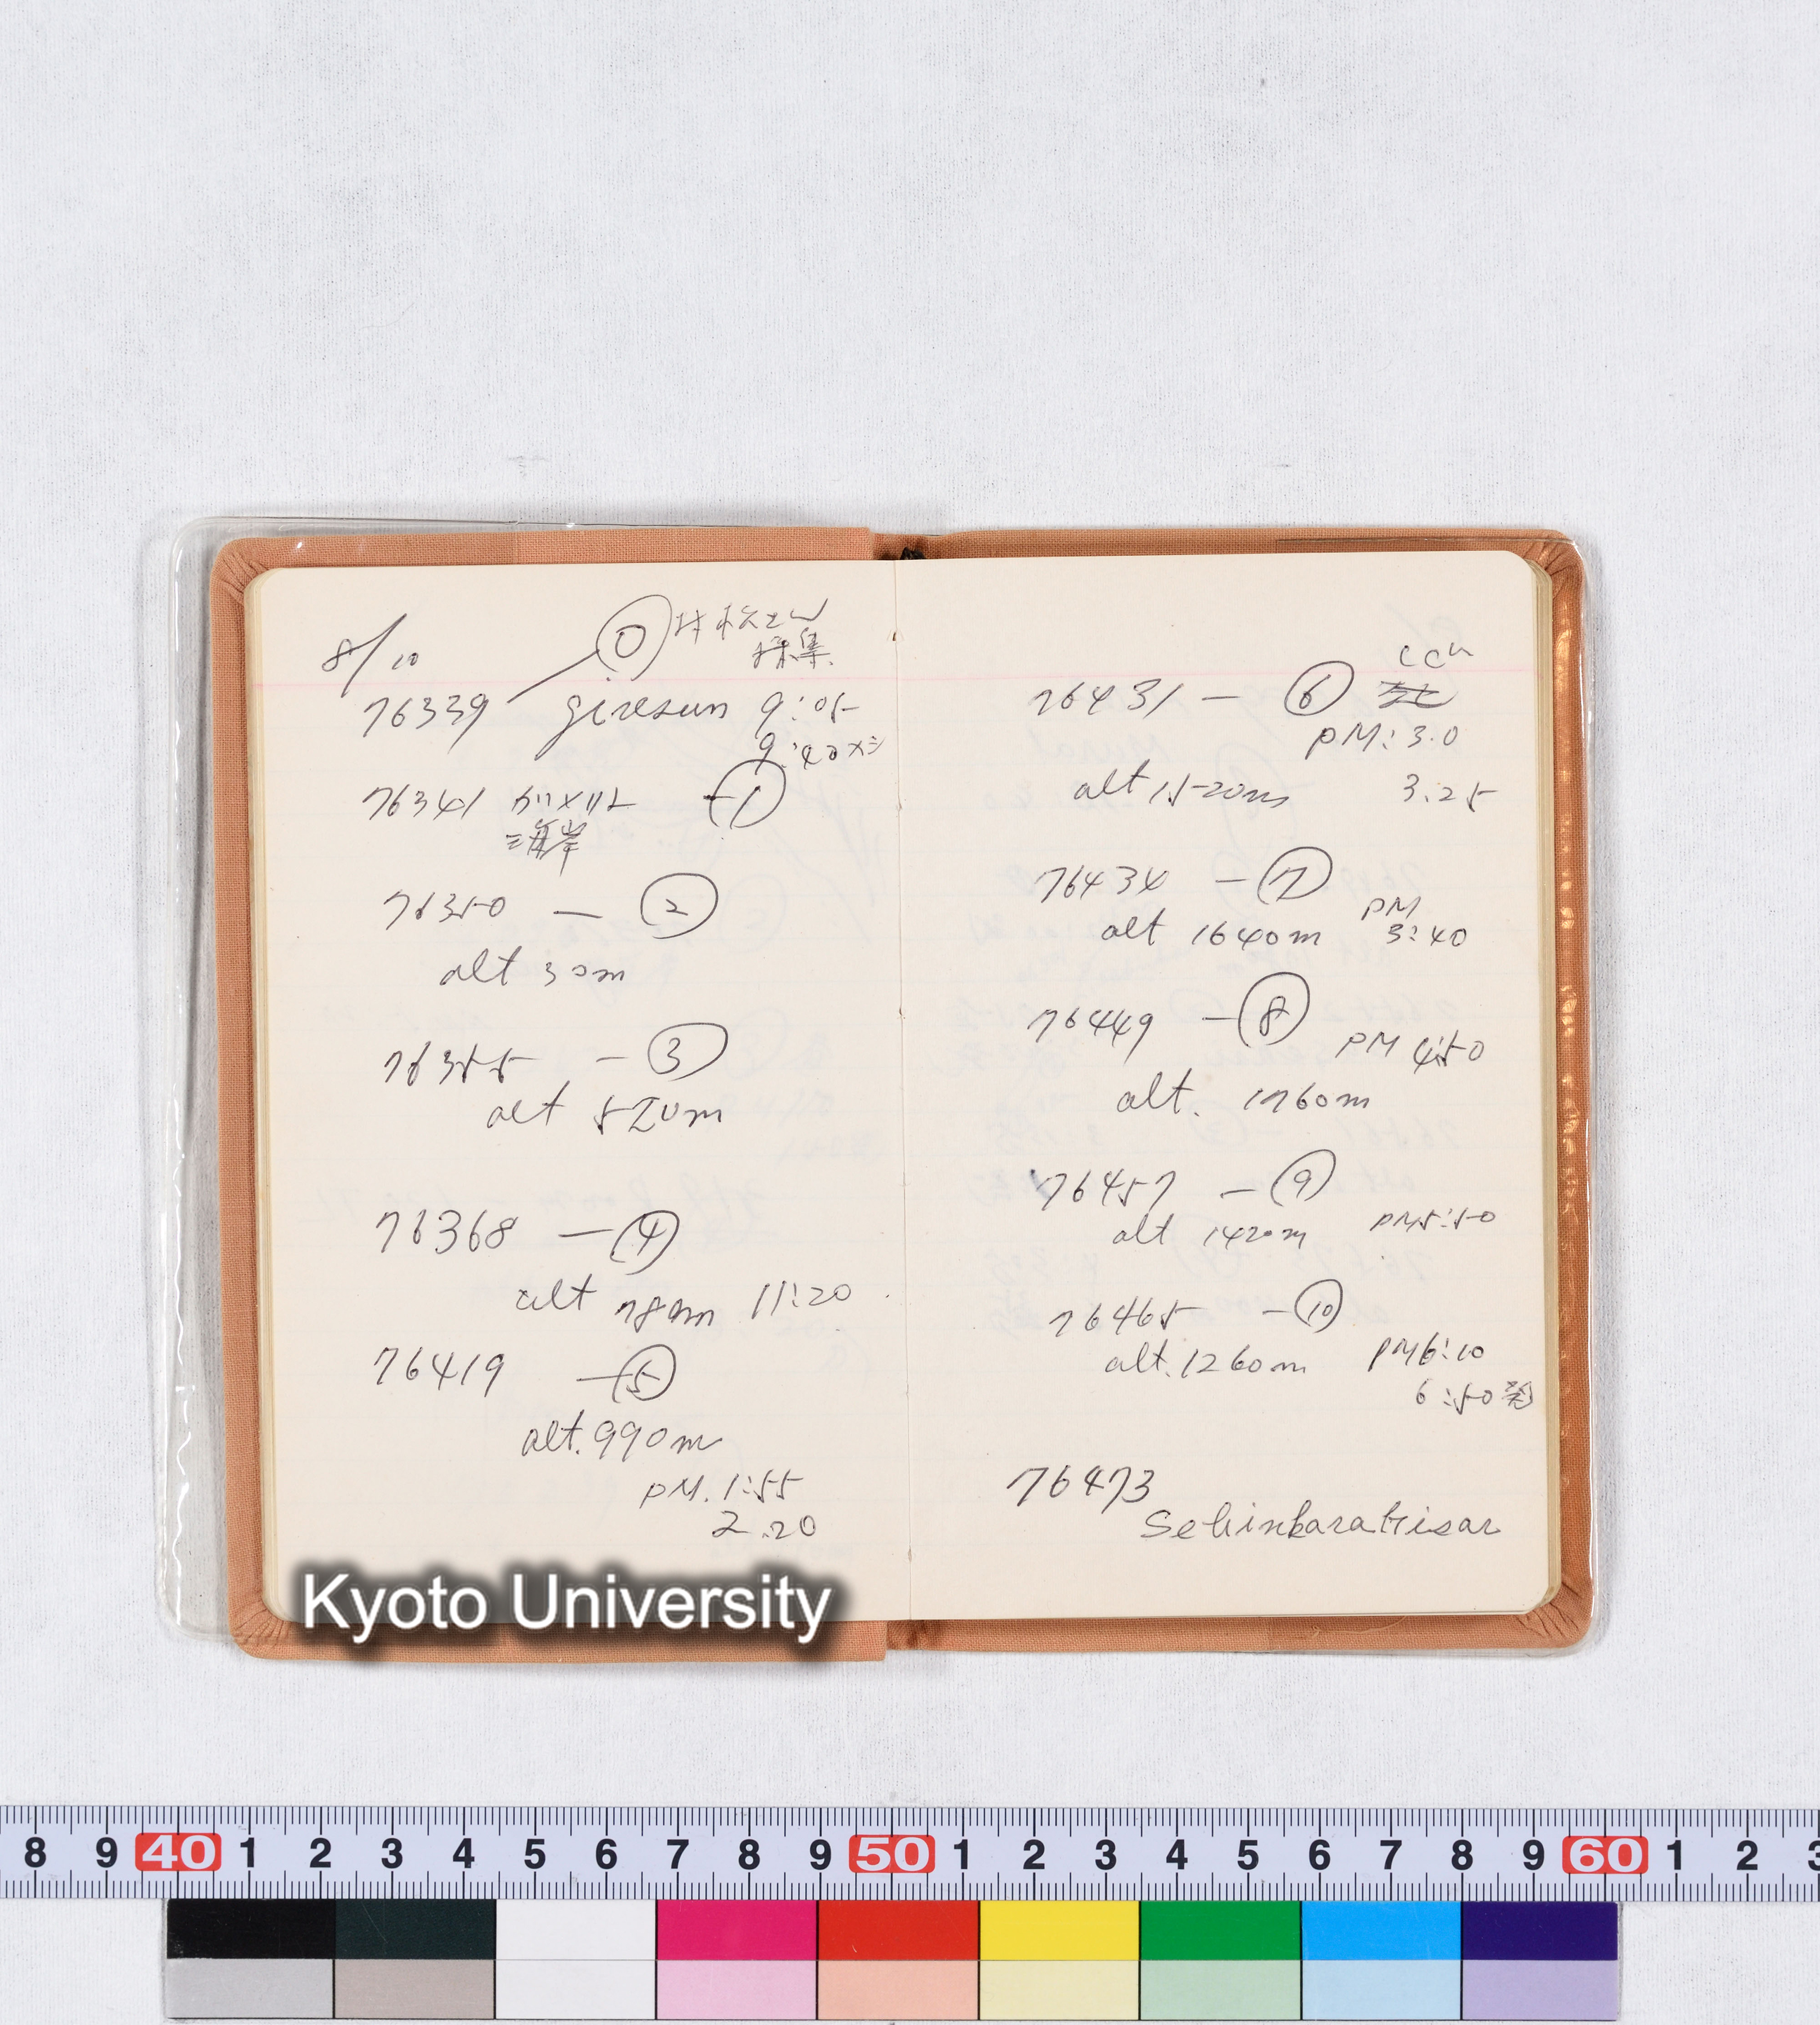 8/10
⓪ 村松さん
採集
76339 giresun 9:05
9:40
76341 — ①
海岸
76350 — ②
alt 30m
76355 — ③
alt 520m
76368 — ④
alt 780m 11:20
76419 — ⑤
alt. 990m
PM. 1:55
2.20
76431 — ⑥
PM: 3.0
alt 1520m 3.25
76434 — ⑦
PM
alt 1640m 3:40
76449 — ⑧
PM 4:50
alt. 1760m
76457 — ⑨
alt 1420m PM5:50
76465 — ⑩
alt. 1260m PM6:10
6:50発
76473
Sebinkarahisar
Kyoto University
8 9 40 1 2 3 4 5 6 7 8 9 50 1 2 3 4 5 6 7 8 9 60 1 2 3